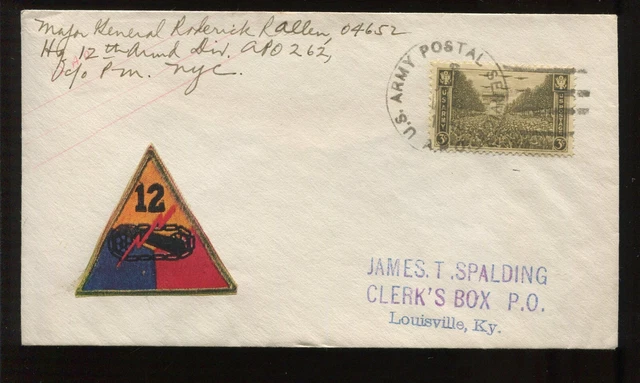 Major General Roderick R Allen, 04652
Hq 12th Armd Div. APO 262,
c/o P.M. NYC.
U.S. ARMY POSTAL SER
U.S. ARMY
3¢ 3¢
12
JAMES. T .SPALDING
CLERK'S BOX P.O.
Louisville, Ky.